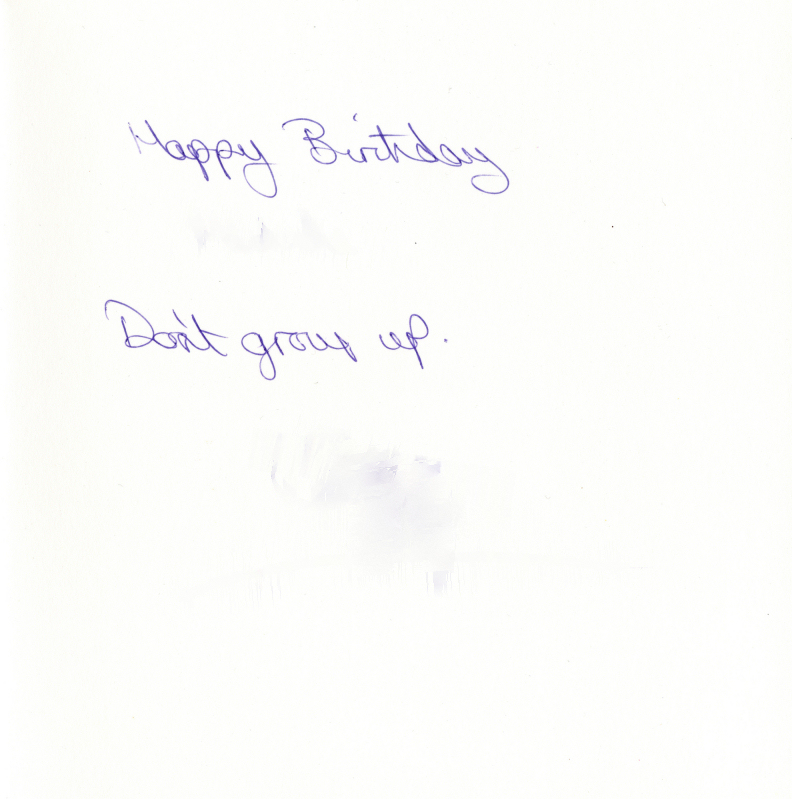 Happy Birthday
Don't grow up.